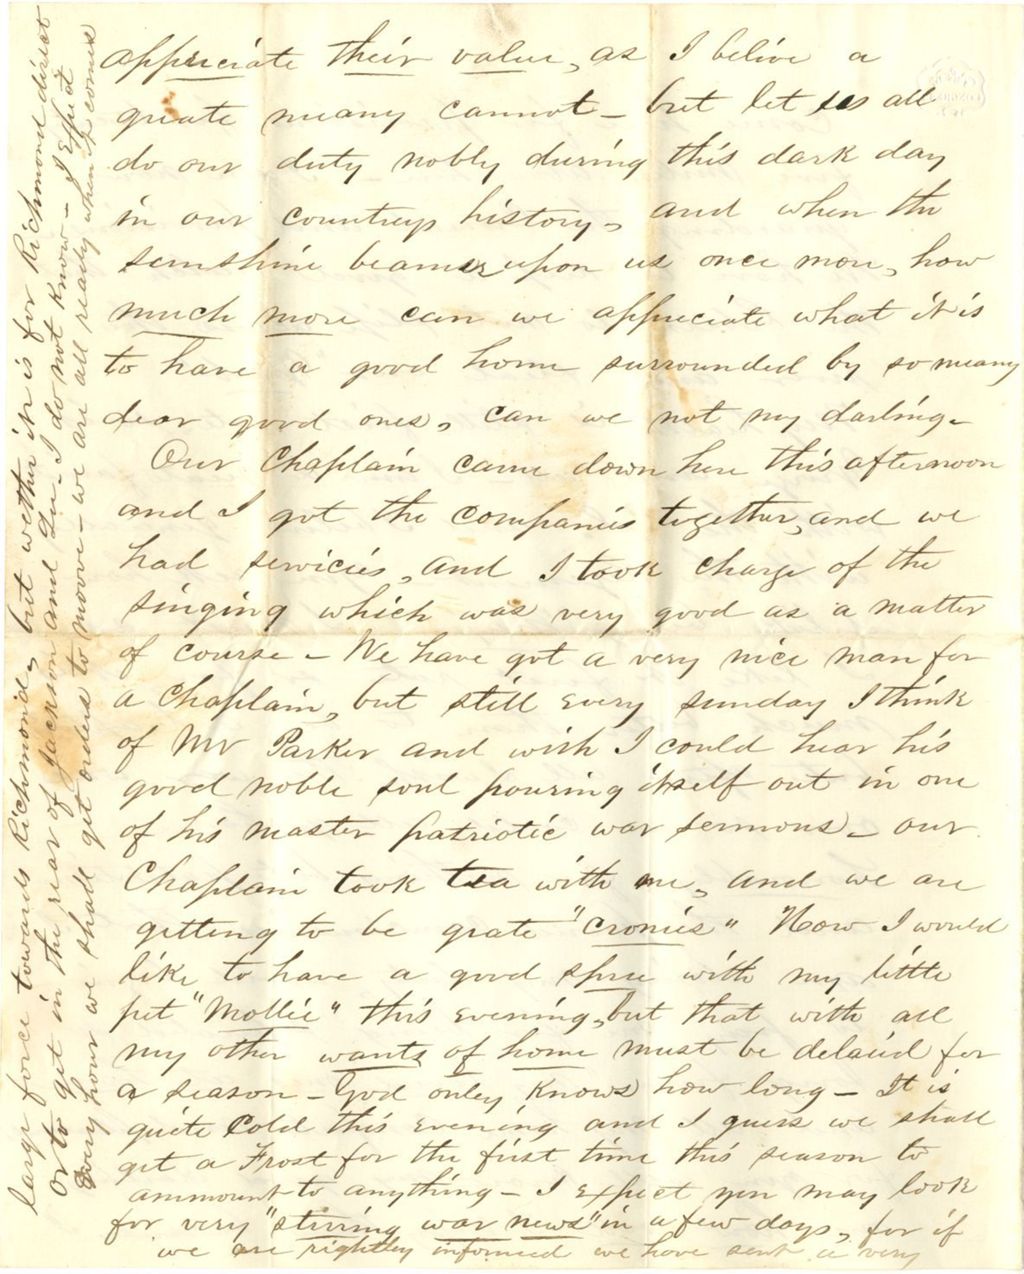 appreciate their value, as I belive a
greate meany cannot - but let us all
do our duty nobly during this dark day
in our countreys history, and when the
sunshine beams upon us once more, how
much more can we appreciate what it is
to have a good home surrounded by so meany
dear good ones, can we not my darling -
Our Chaplain came down here this afternoon
and I got the companies together, and we
had servicies, and I took charge of the
singing which was very good as a matter
of course - We have got a very nice man for
a Chaplain, but still every sunday I think
of Mr Parker and wish I could hear his
good noble soul pouring itself out in one
of his master patriotic war sermons - our
Chaplain took tea with me, and we are
getting to be grate "cronies" Now I would
like to have a good spree with my little
pet "Mollie" this evening, but that with all
my other wants of home must be delaied for
a season - God only knows how long - It is
quite Cold this evening and I guess we shall
get a Frost for the first time this season to
ammount to anything - I expect you may look
for very "stirring war news" in a few days, for if
we are rightley informed we have sent a very
large force towards Richmond, but wether it is for Richmond direct
or to get in the rear of Jackson and Lee, I do not know - I Expect
Every hour we shall get orders to moove - we are all ready when it comes